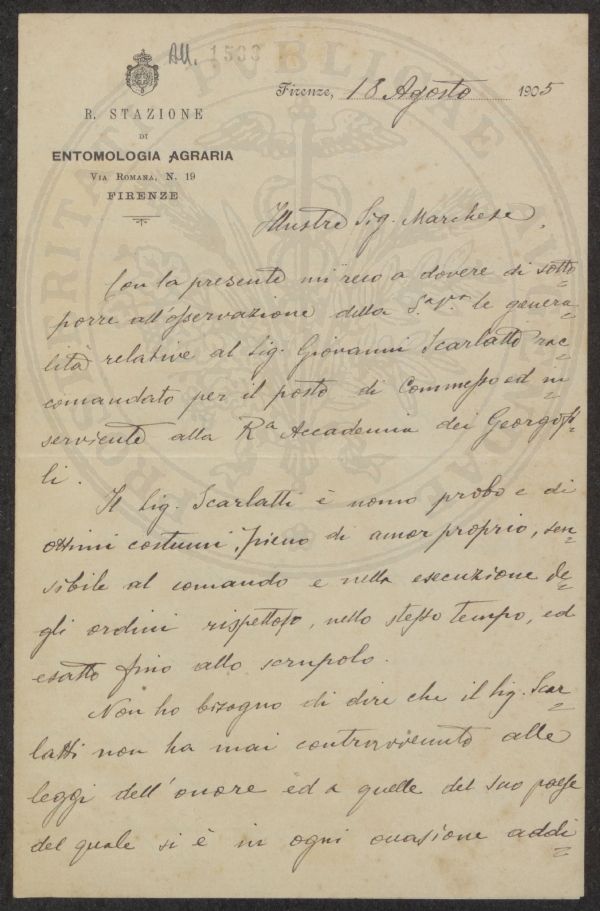 All. 1533
Firenze, 18 Agosto 1905
R. STAZIONE
DI
ENTOMOLOGIA AGRARIA
VIA ROMANA, N. 19
FIRENZE
Illustre Sig. Marchese,
Con la presente mi reco a dovere di sotto=
porre all'osservazione della S.ª V.ª le genera=
lità relative al Sig. Giovanni Scarlatti rac=
comandato per il posto di Commesso ed in=
serviente alla Rª Accademia dei Georgofi=
li.
Il Sig. Scarlatti è uomo probo e di
ottimi costumi, pieno di amor proprio, sen=
sibile al comando e nella esecuzione de=
gli ordini rispettoso, nello stesso tempo, ed
esatto fino allo scrupolo.
Non ho bisogno di dire che il Sig. Scar=
latti non ha mai contravvenuto alle
leggi dell'onore ed a quelle del suo paese
del quale si è in ogni occasione addi=